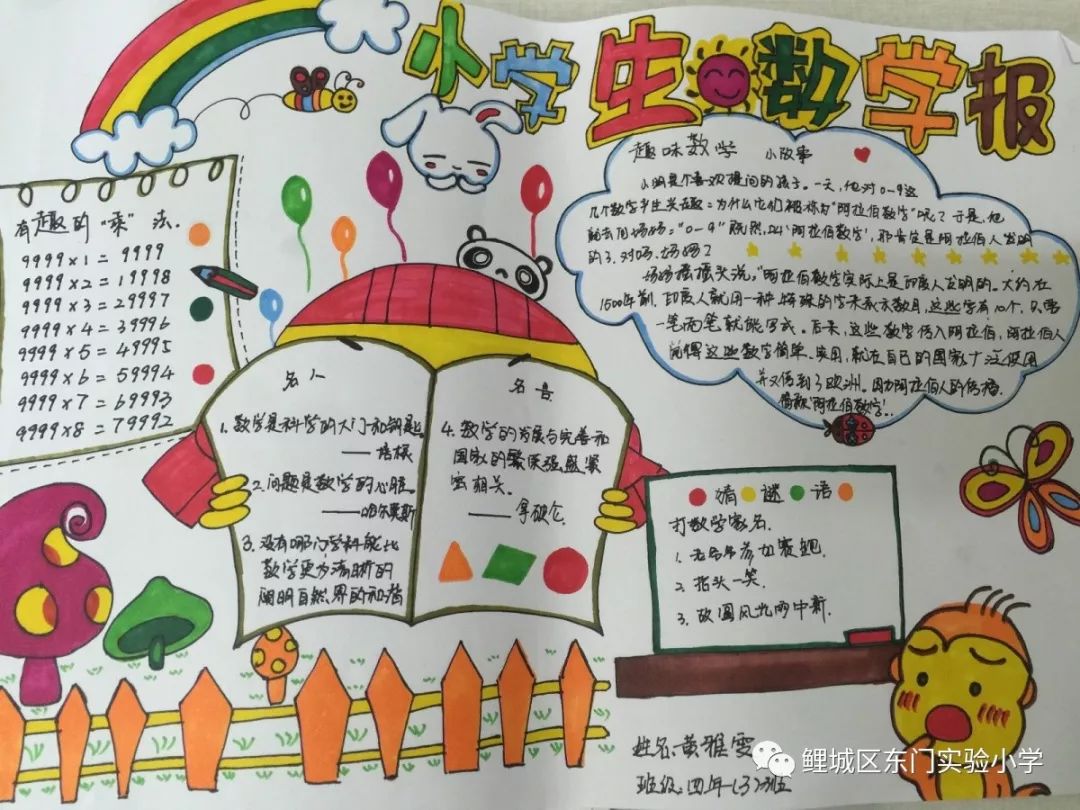 小学生数学报
有趣的"乘"法.
9999×1=9999
9999×2=11998
9999×3=29997
9999×4=39996
9999×5=49995
9999×6=59994
9999×7=69993
9999×8=79992
趣味数学 小故事
小明是个喜欢提问的孩子.一天,他对0-9这
几个数字产生兴趣:为什么它们被称为"阿拉伯数字"呢?于是,他
就去问妈妈:"0-9"既然叫'阿拉伯数字',那肯定是阿拉伯人发明
的了,对吗,妈妈?
妈妈摇摇头说,"阿拉伯数字实际上是印度人发明的.大约在
1500年前,印度人就用一种特殊的字来表示数目,这些字有10个,只要
一笔两笔就能写成.后来,这些数字传入阿拉伯,阿拉伯人
觉得这些数字简单、实用,就在自己的国家广泛使用
并又传到了欧洲.因为阿拉伯人的传播,
阿拉伯数字'.
名人
1.数学是科学的大门和钥匙.
——培根
2.问题是数学的心脏.
——哈尔莫斯
3.没有哪门学科能比
数学更为清晰的
阐明自然界的和谐
名言
4.数学的发展与完善和
国家的繁荣强盛紧
密相关.
——拿破仑
猜谜语
打数学家名.
1.老爷爷参加赛跑.
2.指头一笑.
3.故国风光雨中新.
姓名:黄雅雯
班级:四年(3)班
鲤城区东门实验小学